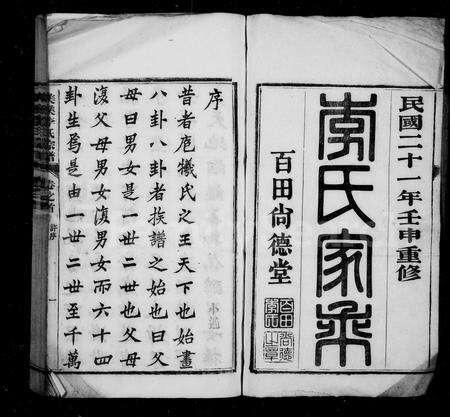 民國二十一年壬申重修
李氏家乘
百田尚德堂
序
昔者庖犧氏之王天下也始畫
八卦八卦者族譜之始也曰父
母曰男女是一世二世也父母
復父母男女復男女而六十四
卦生焉是由一世二世至千萬
卷之首